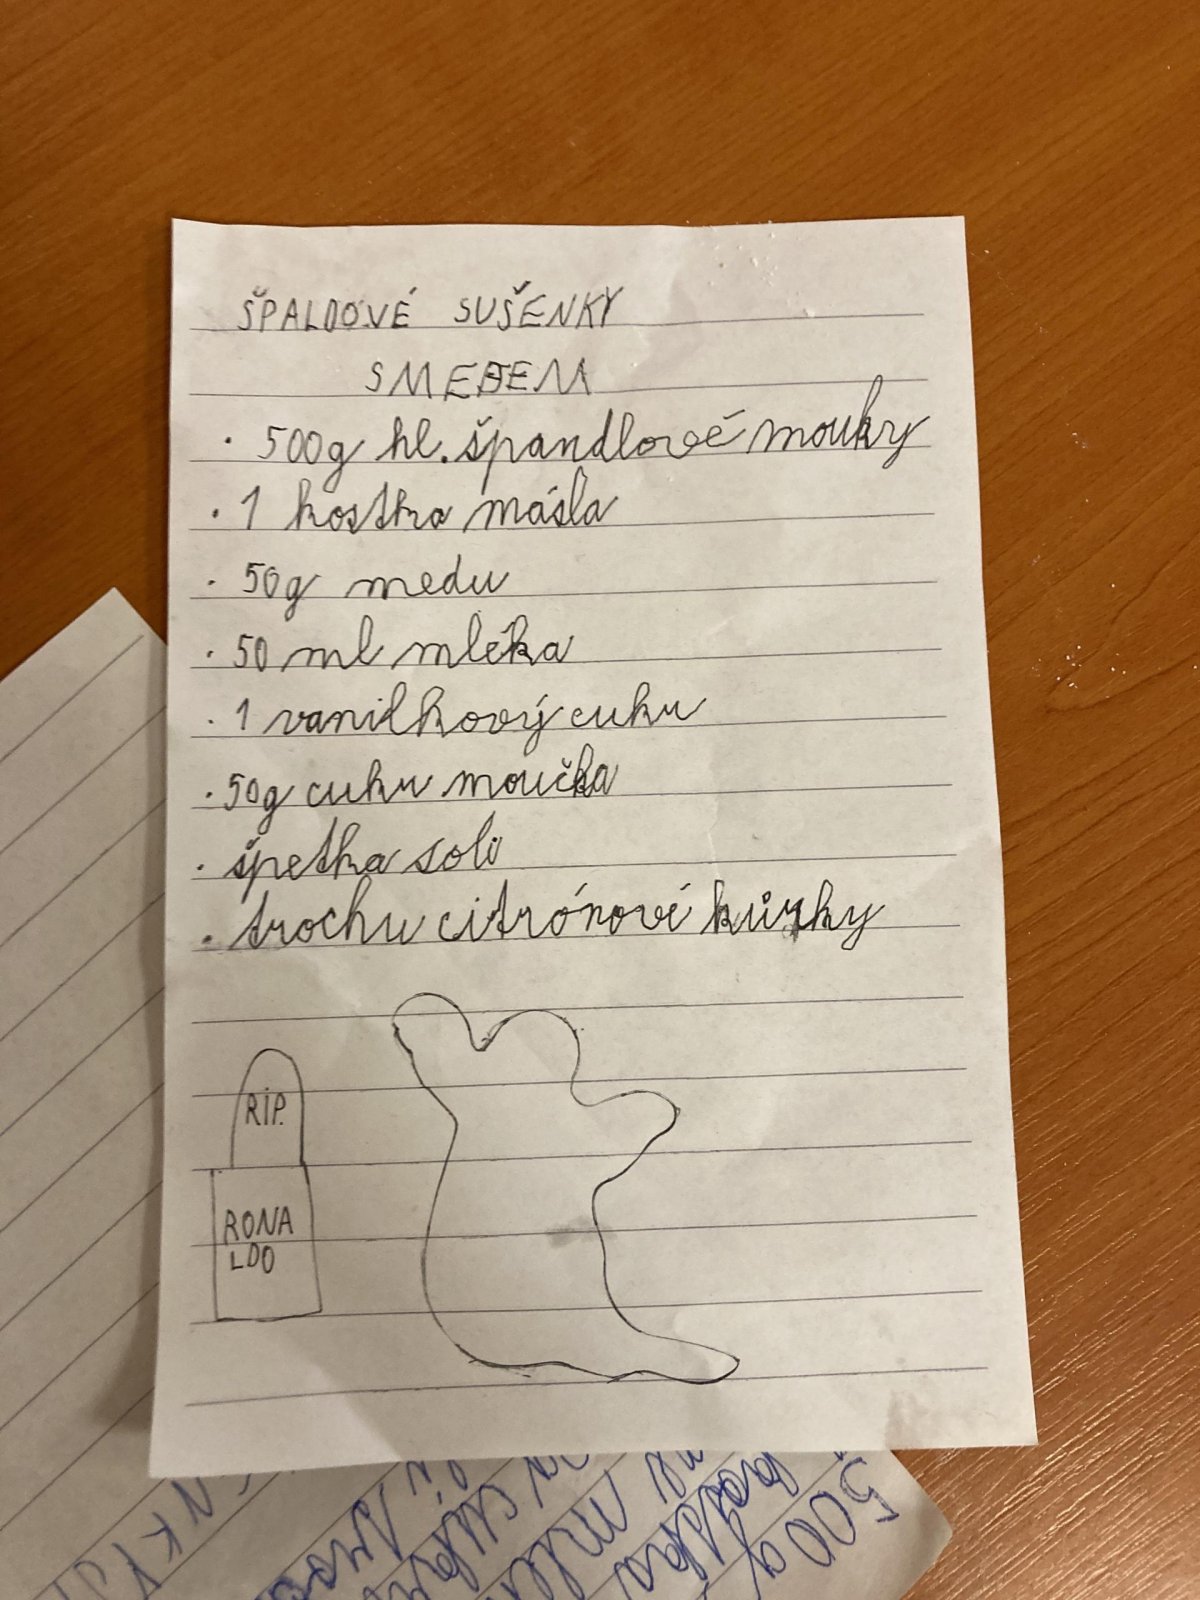 ŠPALDOVÉ SUŠENKY
SMEDEM
· 500g hl. špandlové mouky
· 1 kostka másla
· 50g medu
· 50 ml mléka
· 1 vanilkový cukr
· 50g cukr moučka
· špetka soli
· trochu citrónové kůrky
RIP.
RONA
LDO
500g